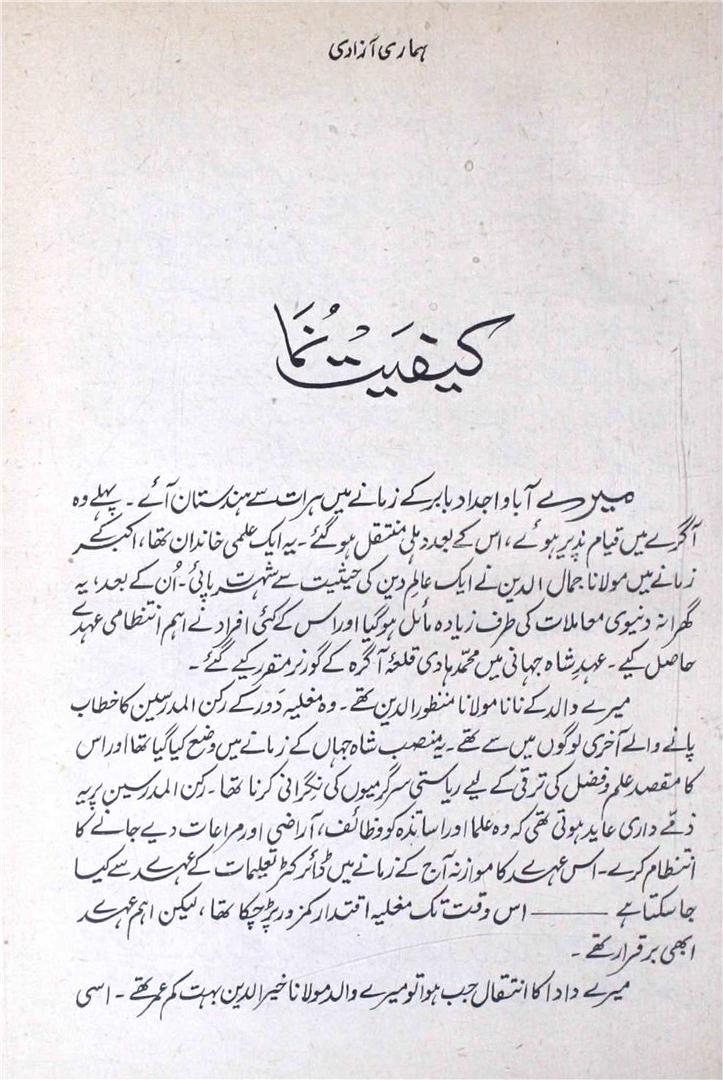 ہماری آزادی
کیفیَت نُمَا
میرے آبا و اجداد بابر کے زمانے میں ہرات سے ہندستان آئے ۔ پہلے وہ
آگرے میں قیام پذیر ہوئے ، اس کے بعد دہلی منتقل ہو گئے ۔ یہ ایک علمی خاندان تھا ، اکبر کے
زمانے میں مولانا جمال الدین نے ایک عالمِ دین کی حیثیت سے شہرت پائی ۔ اُن کے بعد ، یہ
گھرانہ دنیوی معاملات کی طرف زیادہ مائل ہو گیا اور اس کے کئی افراد نے اہم انتظامی عہدے
حاصل کیے ۔ عہدِ شاہ جہانی میں محمد ہادی قلعۂ آگرہ کے گورنر مقرر کیے گئے ۔
میرے والد کے نانا مولانا منظور الدین تھے ۔ وہ مغلیہ دَور کے رکن المدرسین کا خطاب
پانے والے آخری لوگوں میں سے تھے ۔ یہ منصب شاہ جہاں کے زمانے میں وضع کیا گیا تھا اور اس
کا مقصد علم و فضل کی ترقی کے لیے ریاستی سرگرمیوں کی نگرانی کرنا تھا ۔ رکن المدرسین پر یہ
ذمّے داری عاید ہوتی تھی کہ وہ علما اور اساتذہ کو وظائف ، آراضی اور مراعات دیے جانے کا
انتظام کرے ۔ اس عہدے کا موازنہ آج کے زمانے میں ڈائرکٹر تعلیمات کے عہدے سے کیا
جا سکتا ہے ـــــــ اس وقت تک مغلیہ اقتدار کمزور پڑ چکا تھا ، لیکن اہم عہدے
ابھی برقرار تھے ۔
میرے دادا کا انتقال جب ہوا تو میرے والد مولانا خیر الدین بہت کم عمر تھے ۔ اسی